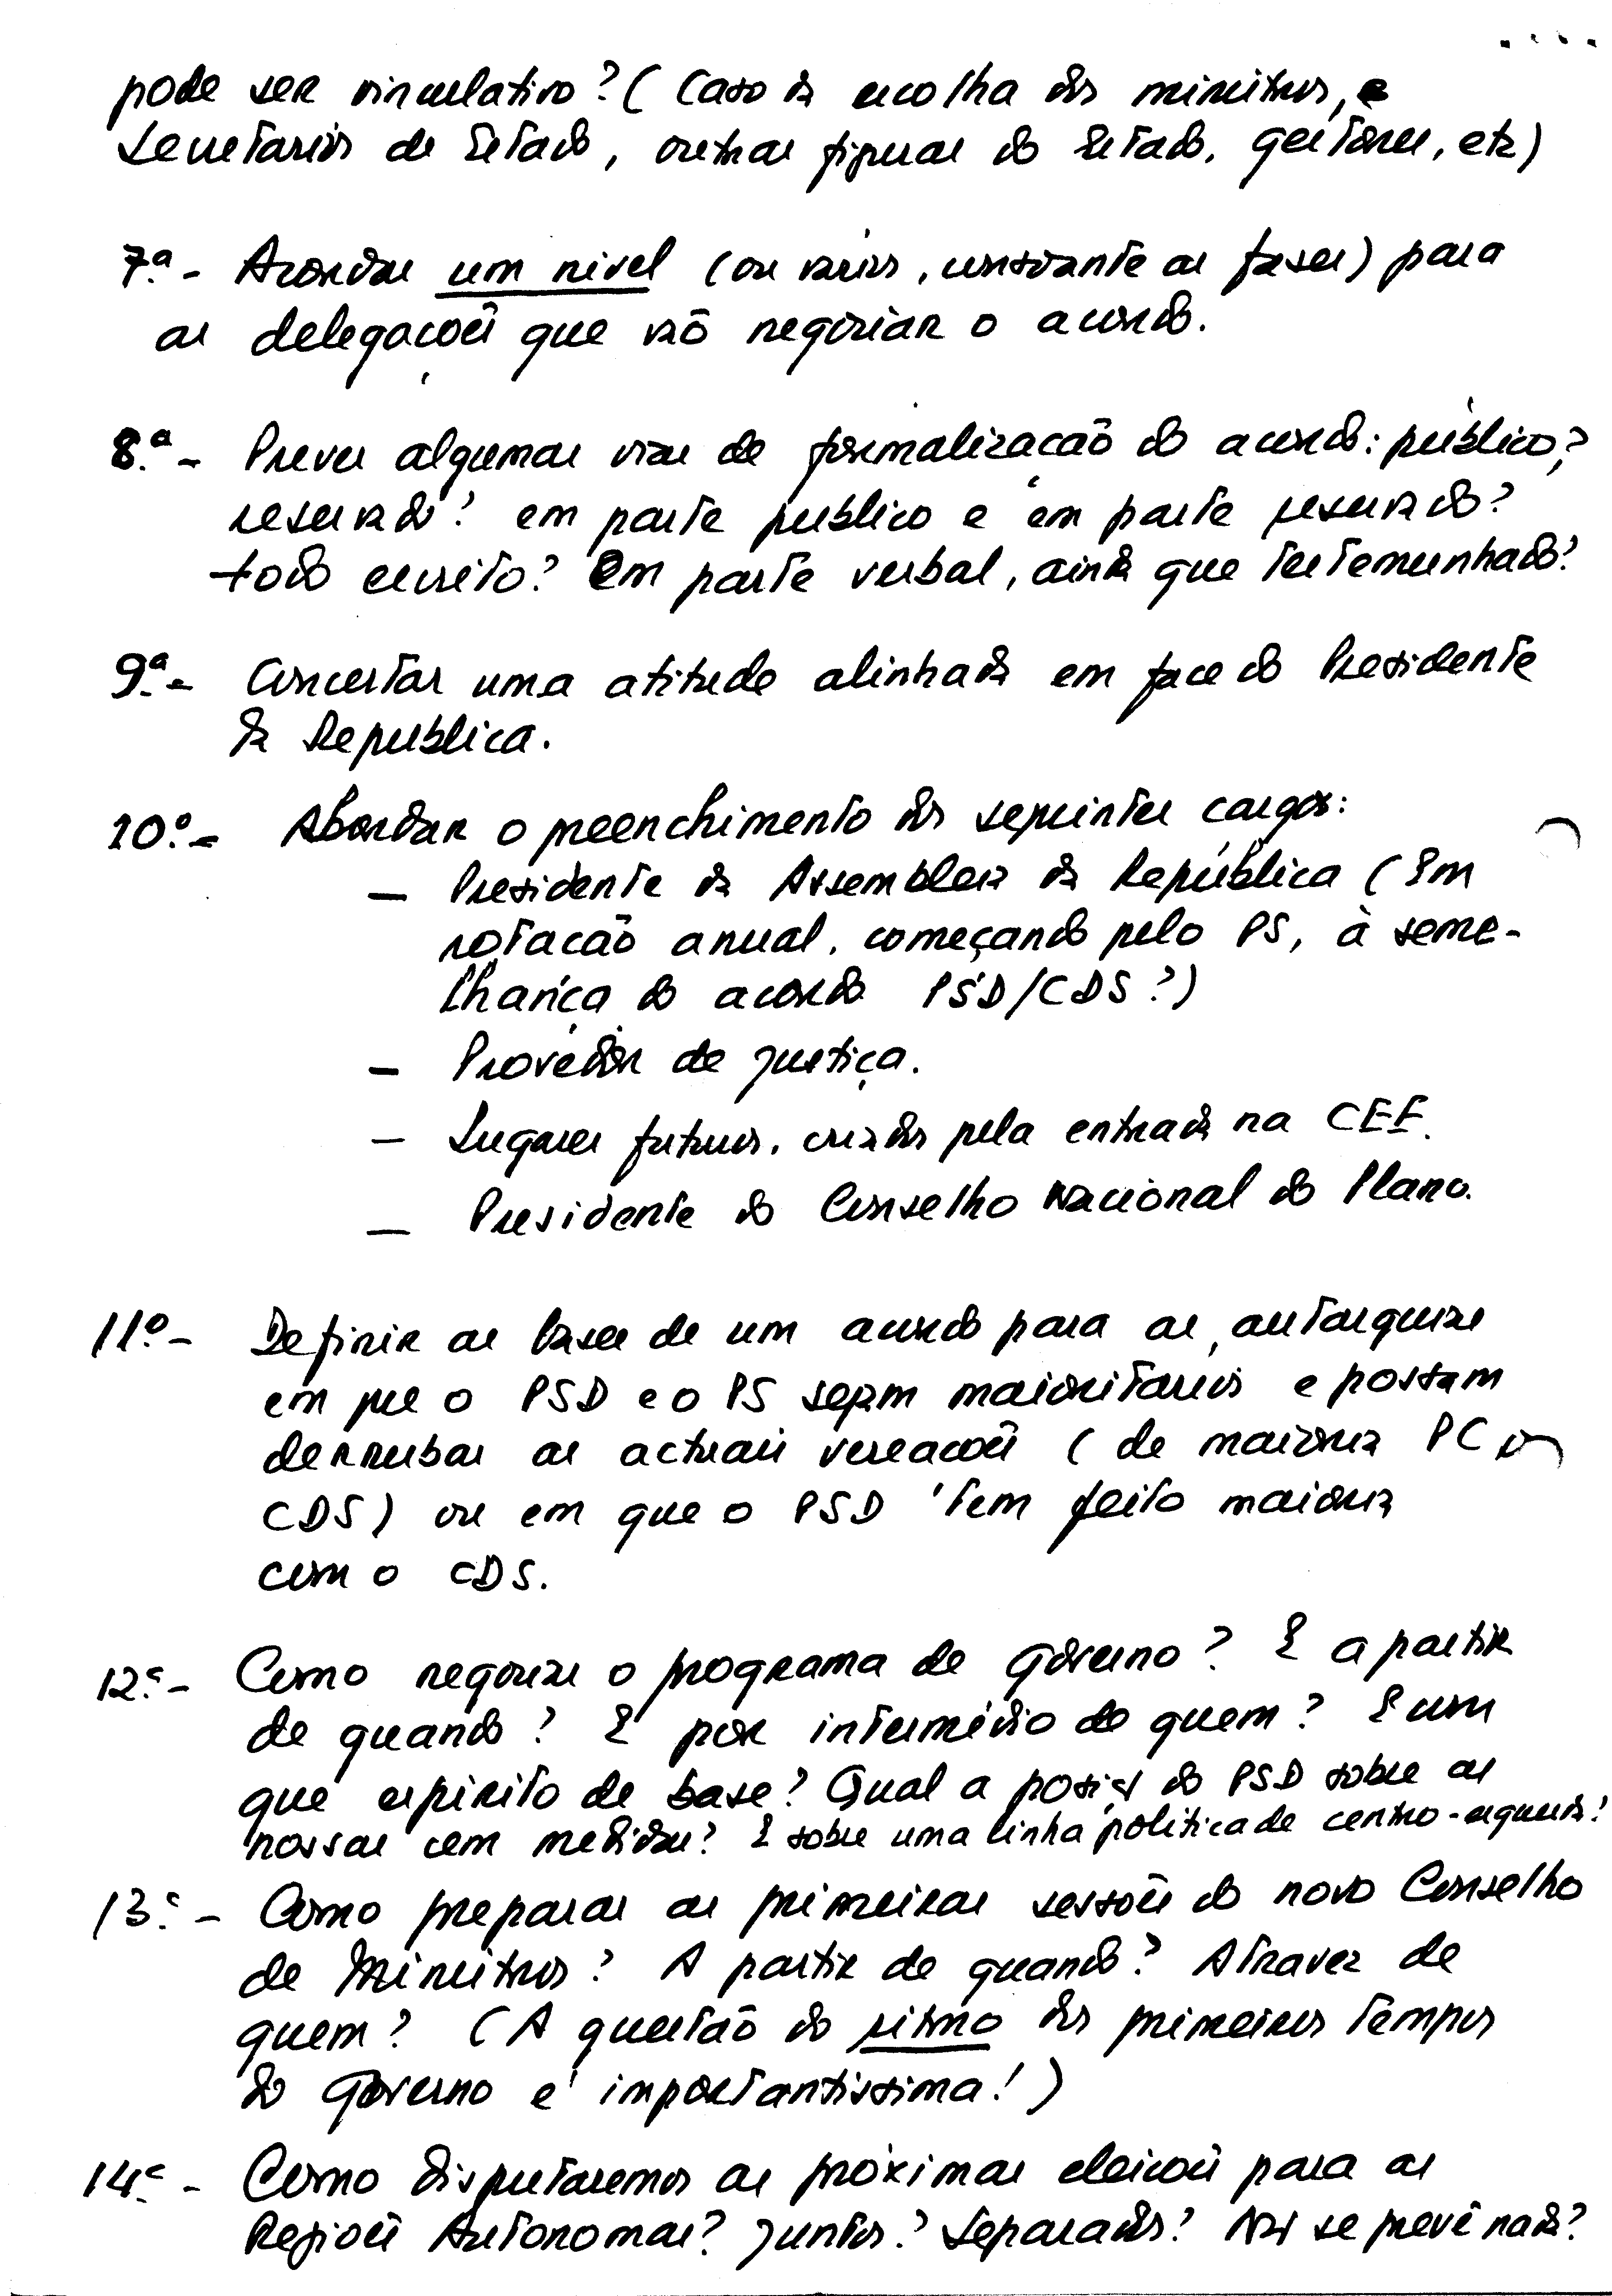 pode ser vinculativo? (Caso da escolha dos ministros, e
Secretarios de Estado, outras figuras do Estado, gestores, etc)
7.ª - Acordar um nivel (ou varios, consoante as fases) para
as delegações que vão negociar o acordo.
8.ª - Prever algumas vias de formalização do acordo: público?
reservado? em parte publico e em parte reservado?
todo escrito? Em parte verbal, ainda que testemunhado?
9.ª - Concertar uma atitude alinhada em face do Presidente
da Republica.
10.º - Abordar o preenchimento dos seguintes cargos:
— Presidente da Assembleia da República (Em
rotação anual, começando pelo PS, à seme-
lhança do acordo PSD/CDS?)
— Provedor de Justiça.
— Lugares futuros, criados pela entrada na CEE.
— Presidente do Conselho Nacional do Plano.
11º - Definir as bases de um acordo para as autarquias
em que o PSD e o PS sejam maioritarios e possam
derrubar as actuais vereações (de maioria PC ou
CDS) ou em que o PSD tem feito maioria
com o CDS.
12.º - Como negociar o programa de Governo? E a partir
de quando? E por intermédio de quem? E com
que espirito de base? Qual a posição do PSD sobre as
nossas cem medidas? E sobre uma linha politica de centro-esquerda?
13.º - Como preparar as primeiras sessões do novo Conselho
de Ministros? A partir de quando? Atravez de
quem? (A questão do ritmo dos primeiros tempos
do Governo é importantissima!)
14º - Como disputaremos as próximas eleições para as
Regiões Autonomas? Juntos? Separados? Não se prevê nada?